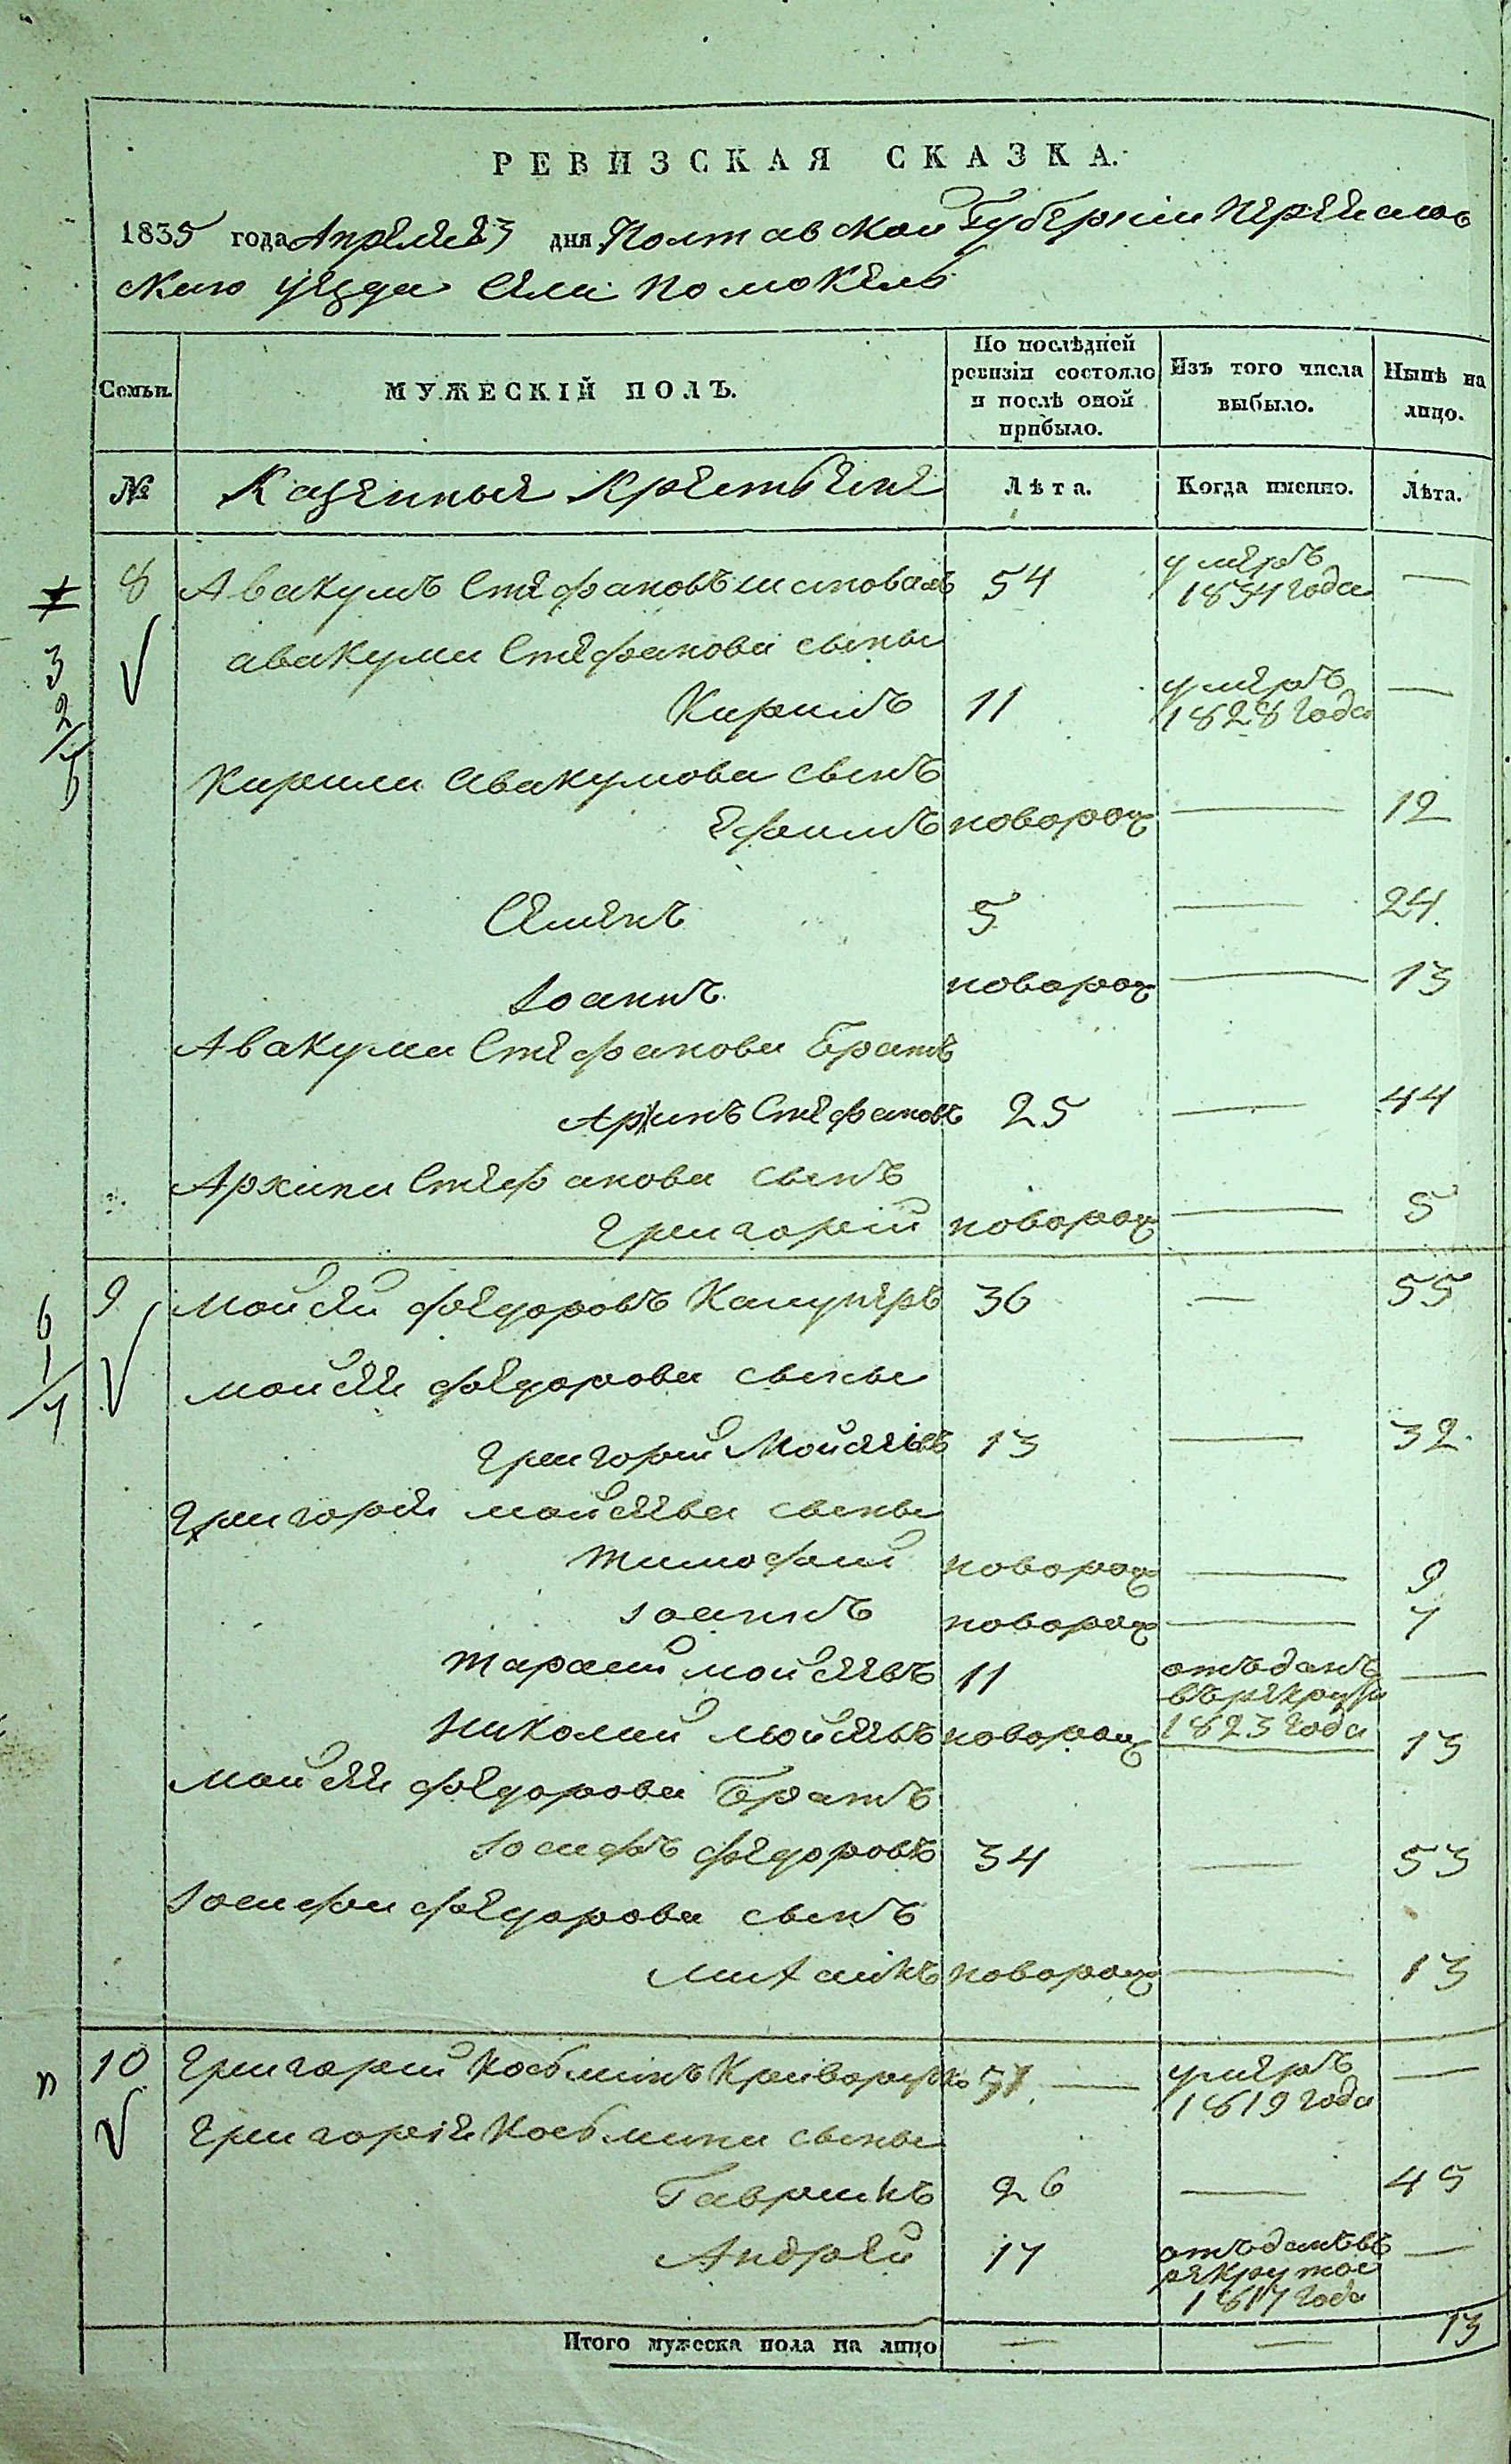 РЕВИЗСКАЯ СКАЗКА.
1835 года Апреля 23 дня Полтавской Губернии Переяслов
скаго уезда Села Помокель
Семьи. МУЖЕСКІЙ ПОЛЪ. По послѣдней ревизіи состояло и послѣ оной прибыло. Изъ того числа выбыло. Нынѣ на лицо.
№ Казенныя Крестьяне Лѣта. Когда именно. Лѣта.
8 Авакумъ Стефановъ Шаповалъ 54 умеръ 1834 года —
3
2
авакума Стефанова сыны
Кирилъ 11 умеръ 1828 года —
Кирила Авакумова сынъ
Ефимъ новорож — 12
Семенъ 5 — 24.
Іоаннъ новорож — 13
Авакума Стефанова Братъ
Архипъ Стефановъ 25 — 44
Архипа Стефанова сынъ
Григорій новорож — 5
9 Мойсей Федоровъ 36 — 55
6
1
Мойсея Федорова сыны
Григорій Мойсеевъ 13 — 32.
Григорія мойсеева сыны
Тимофей новорож — 9
іоаннъ новорож — 7
Тарасій мойсеевъ 11 отъданъ въ рекруты 1823 года —
Николай мойсеевъ новорож — 13
Мойсея Федорова Братъ
Іосифъ Федоровъ 34 — 53
Іосифа Федорова сынъ
Михаилъ новорож — 13
10 Григорій Косьминъ Криворучко 51 — умеръ 1819 года —
п
Григорія Косьмина сыны
Гавриилъ 26 — 45
Андрей 17 отъданъ въ рекруты 1817 года —
Итого мужеска пола на лицо — — 13